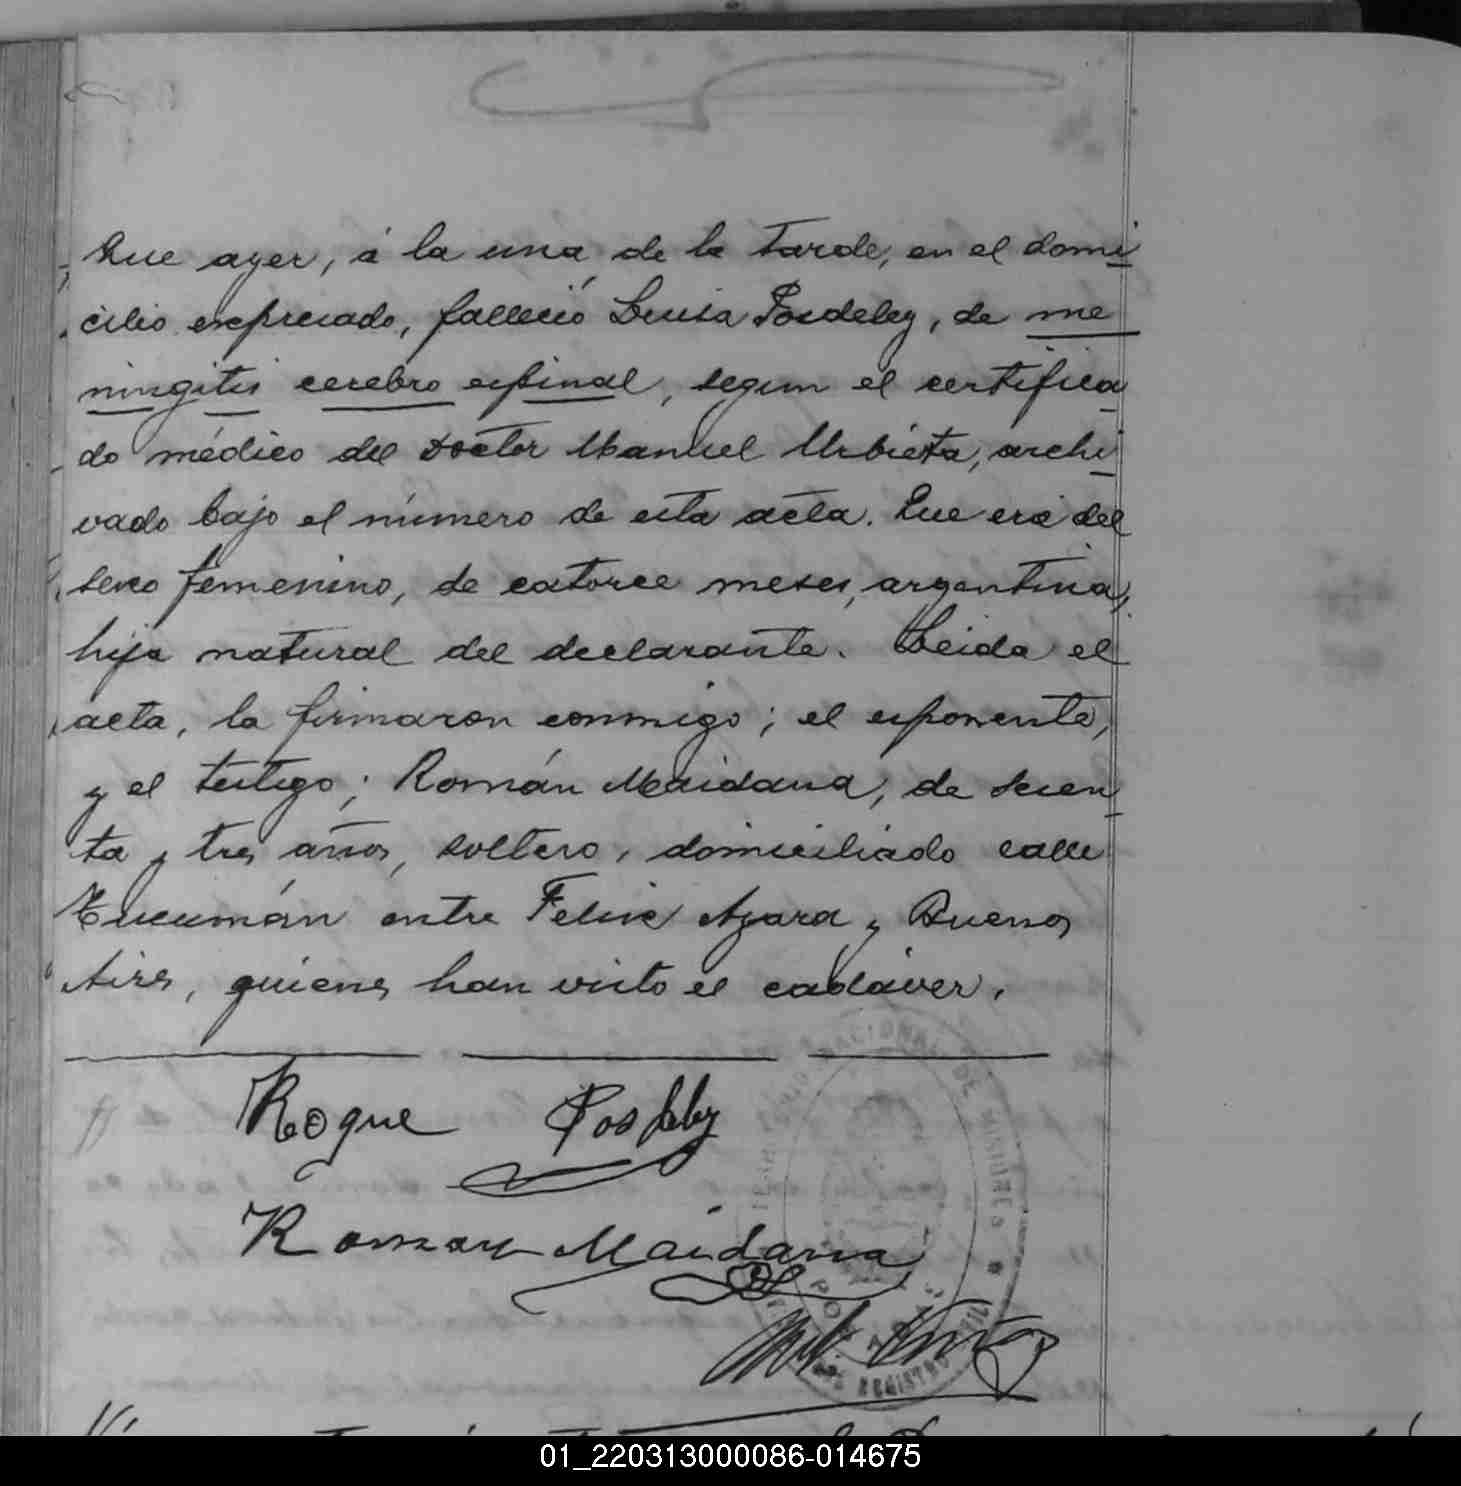 Que ayer, á la una de la tarde, en el domi
cilio expresado, falleció Luisa Posdeley, de me
ningitis cerebro espinal, segun el certifica
do médico del Doctor Manuel Urbieta, archi
vado bajo el número de esta acta. Que era del
sexo femenino, de catorce meses, argentina,
hija natural del declarante. Leida el
acta, la firmaron conmigo; el esponente,
y el testigo; Román Maidana, de sesen
ta y tres años, soltero, domiciliado calle
Tucumán entre Felix Azara y Buenos
Aires, quienes han visto el cadáver.
Roque Posdeley
Roman Maidana
NACIONAL DE MISIONES
REGISTRO
POSADAS
01_220313000086-014675